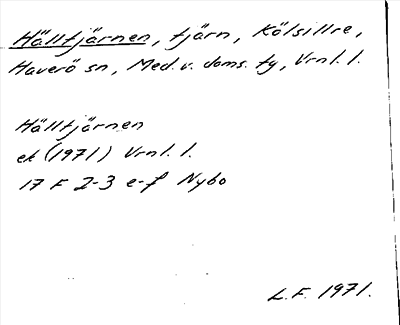 Hälltjärnen, tjärn, Kölsillre,
Haverö sn, Med.v. doms. tg, Vrnl. l.
Hälltjärnen
ek (1971) Vrnl. l.
17 F 2-3 e-f Nybo
L.F. 1971.